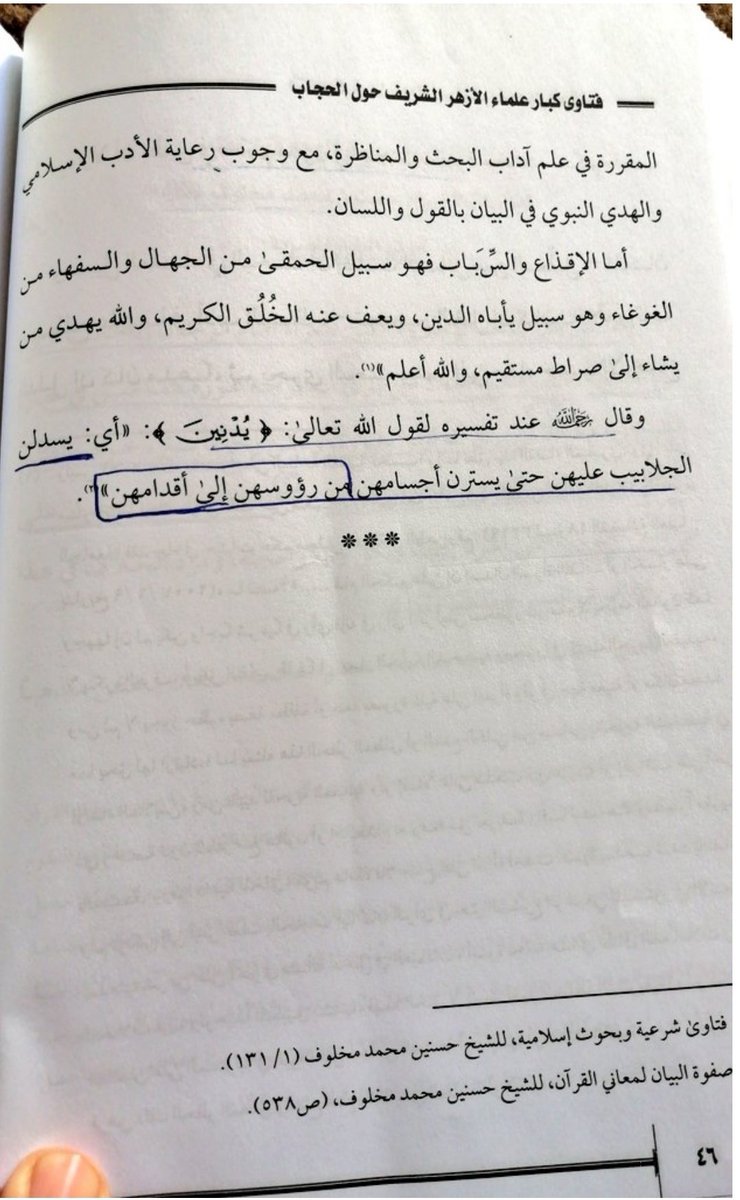 فتاوى كبار علماء الأزهر الشريف حول الحجاب
المقررة في علم آداب البحث والمناظرة، مع وجوب رعاية الأدب الإسلامي
والهدي النبوي في البيان بالقول واللسان.
أما الإقذاع والسِّبَاب فهو سبيل الحمقىٰ من الجهال والسفهاء من
الغوغاء وهو سبيل يأباه الدين، ويعف عنه الخُلُق الكريم، والله يهدي من
يشاء إلىٰ صراط مستقيم، والله أعلم»(١).
وقال رَحِمَهُ اللَّهُ عند تفسيره لقول الله تعالىٰ: ﴿ يُدْنِينَ ﴾: «أي: يسدلن
الجلابيب عليهن حتىٰ يسترن أجسامهن من رؤوسهن إلىٰ أقدامهن»(٢).
***
فتاوىٰ شرعية وبحوث إسلامية، للشيخ حسنين محمد مخلوف (١/ ١٣١).
صفوة البيان لمعاني القرآن، للشيخ حسنين محمد مخلوف، (ص٥٣٨).
٤٦